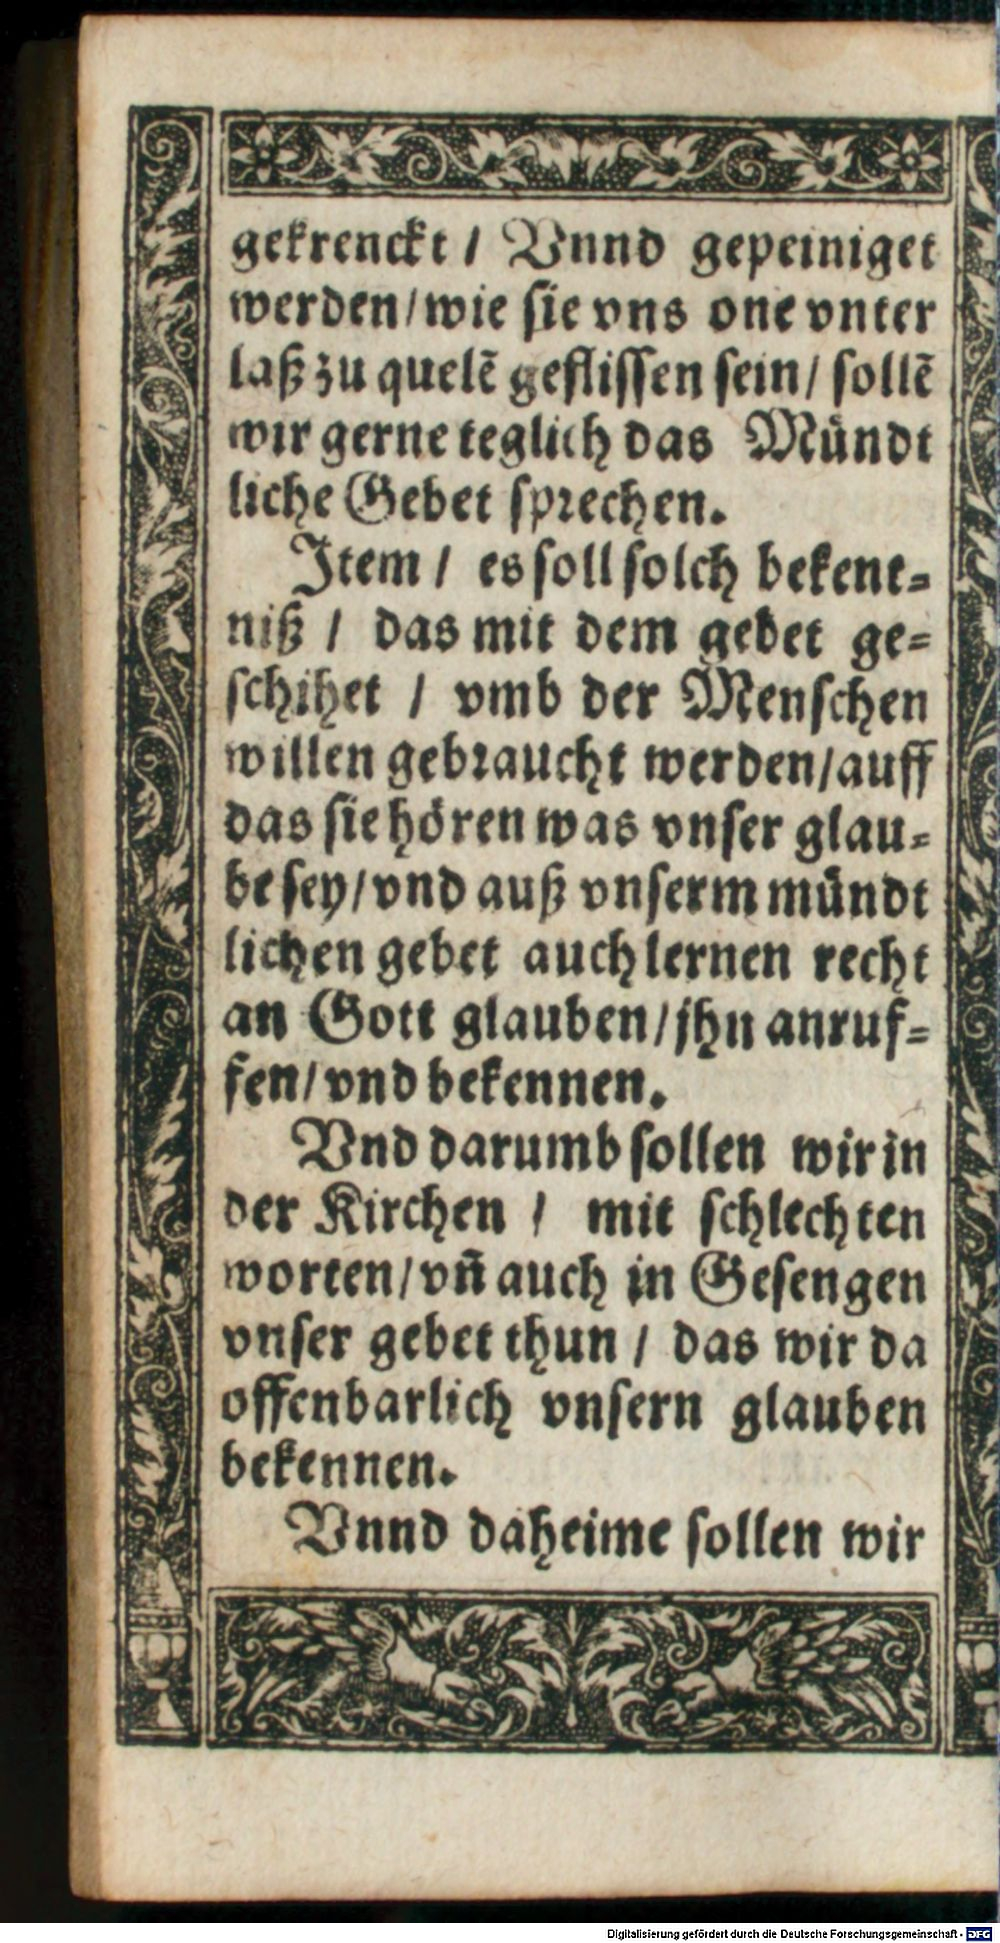 gekrenckt / Vnnd gepeiniget
werden/wie sie vns one vnter
laß zu quelẽ geflissen sein/ sollẽ
wir gerne teglich das Mündt
liche Gebet sprechen.
Item / es soll solch bekent-
niß / das mit dem gebet ge-
schihet / vmb der Menschen
willen gebraucht werden/auff
das sie hören was vnser glau-
be sey/vnd auß vnserm mündt
lichen gebet auch lernen recht
an Gott glauben/jhn anruf-
fen/vnd bekennen.
Vnd darumb sollen wir in
der Kirchen / mit schlechten
worten/vñ auch in Gesengen
vnser gebet thun / das wir da
offenbarlich vnsern glauben
bekennen.
Vnnd daheime sollen wir
Digitalisierung gefördert durch die Deutsche Forschungsgemeinschaft - DFG